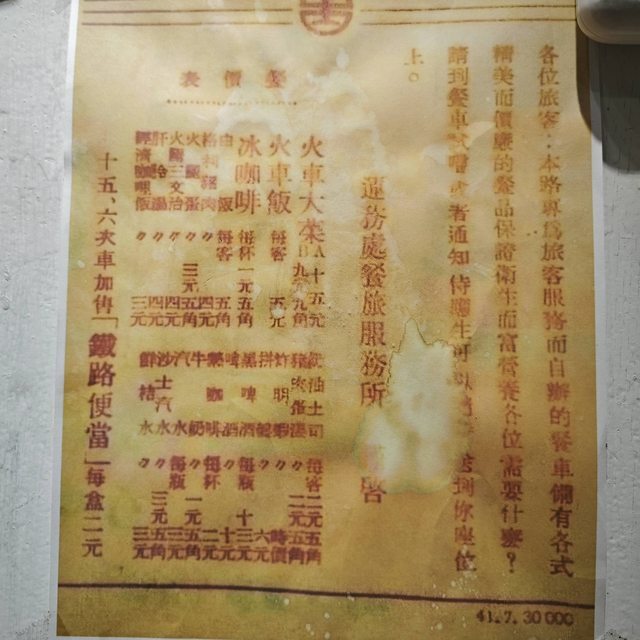 各位旅客：本路專為旅客服務而自辦的餐車備有各式
精美而價廉的餐品保證衛生而富營養各位需要什麼？
請到餐車
或者通知侍應生可以
送到你座位
上。
運務處餐旅服務所
啓
餐價表
火車大菜 A 十五元
B 九元九角
火車飯 每客 五元
冰咖啡 每杯 一元五角
白飯 每客 五角
咖利雞肉 〃 四元
火腿蛋 〃 三元五角
火腿三文治 〃 四元
肝 湯 〃 四元
經濟咖喱飯 〃 三元
油土司 每客 二元五角
豬肉蛋湯 〃 二元五角
炸明蝦 〃 時價
拼盤 〃 六元
黑啤酒 每瓶 十三元
啤酒 〃 十元
熱咖啡 每杯 二元
牛奶 〃 一元五角
汽水 每瓶 三元
沙士汽水 〃 三元五角
鮮桔水 〃 三元
十五、六次車加售「鐵路便當」每盒二元
41. 7. 30000